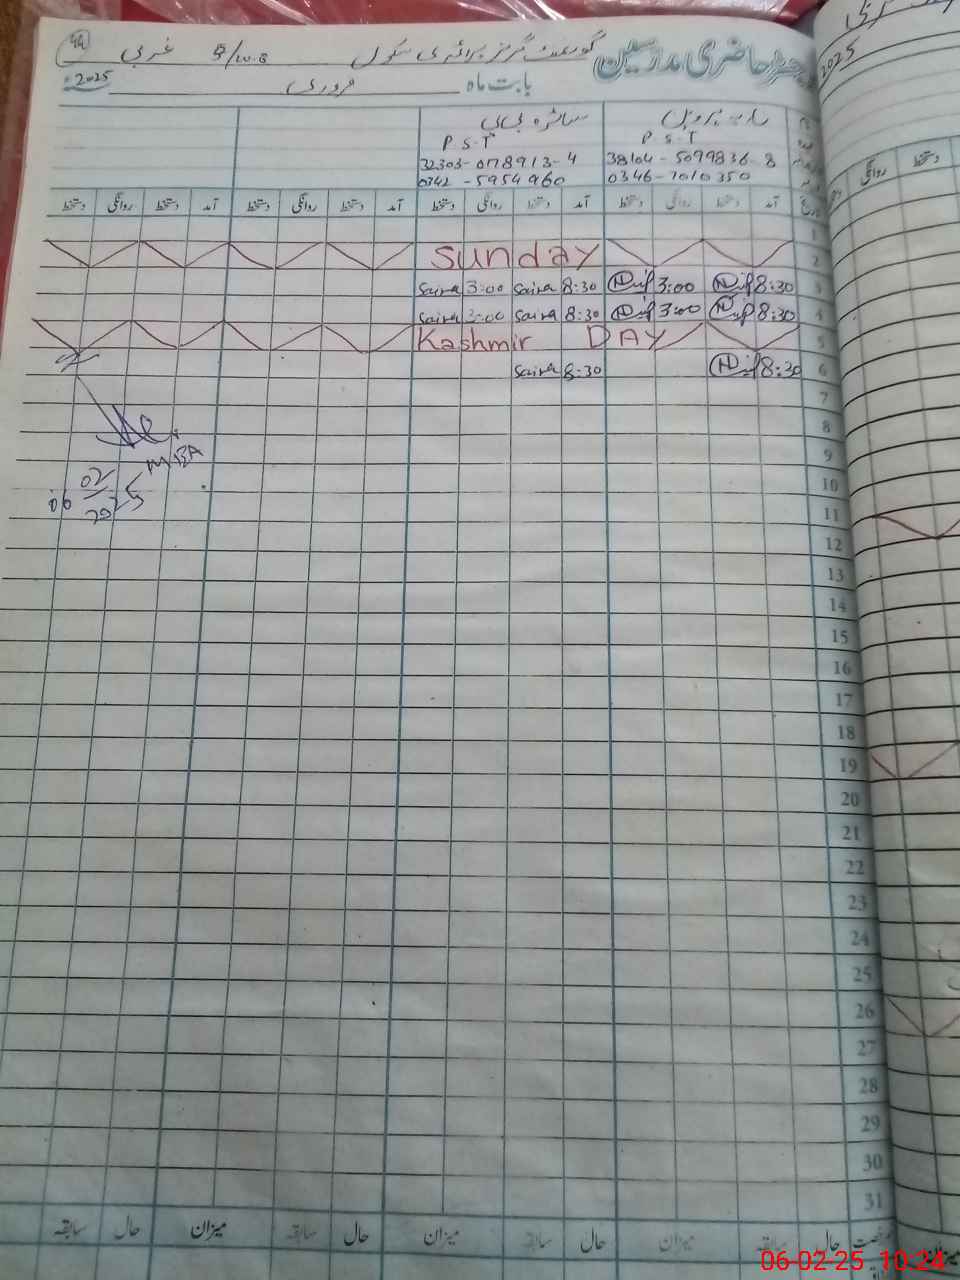 44
رجسٹر حاضری مدرسین گورنمنٹ گرلز پرائمری سکول 5/W.B غربی
بابت ماہ فروری 2025ء
سائرہ بی بی
P S T P S T
38104-5099836-8 32303-0178913-4
0346-7010350 0342-5954960
آمد دستخط روانگی دستخط آمد دستخط روانگی دستخط آمد دستخط روانگی دستخط آمد دستخط روانگی دستخط
1
2 Sunday
3 8:30 3:00 8:30 Saira 3:00 Saira
4 8:30 3:00 8:30 Saira 3:00 Saira
5 Kashmir DAY
6 8:30 8:30 Saira
7
8
9
10
11
12
13
14
15
16
17
18
19
20
21
22
23
24
25
26
27
28
29
30
31
حال سابقہ میزان حال سابقہ میزان حال سابقہ میزان حال سابقہ
06 02 2025
2025
دستخط روانگی
06-02-25 10:24